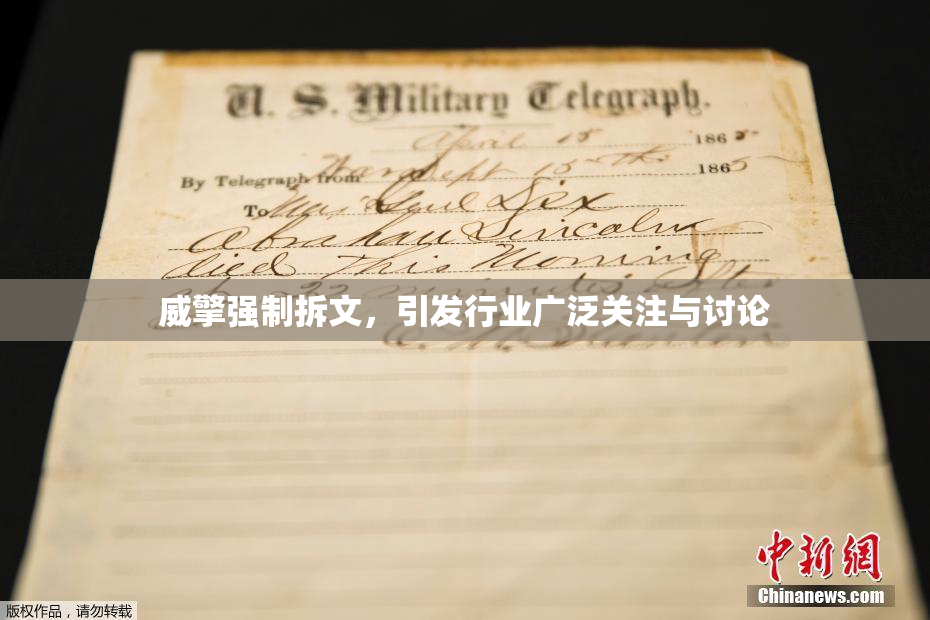 U. S. Military Telegraph.
April 15 1865
By Telegraph from War Dept 15th 1865
To Maj Genl Dix
Abraham Lincoln
died This Morning
at 22 minutes after
威擎强制拆文，引发行业广泛关注与讨论
E. M. Stanton
中新网
Chinanews.com
版权作品，请勿转载